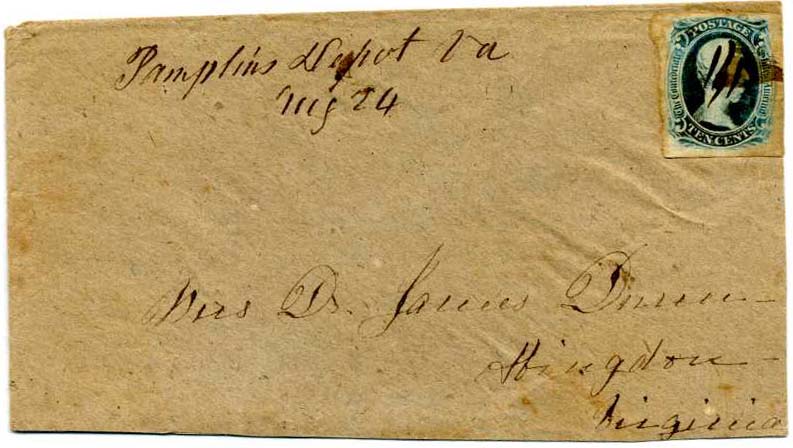 Pamplins Depot Va
Aug 24
POSTAGE
The Confederate States of America
TEN CENTS
Mrs Dr. James Dunn
Abingdon
Virginia